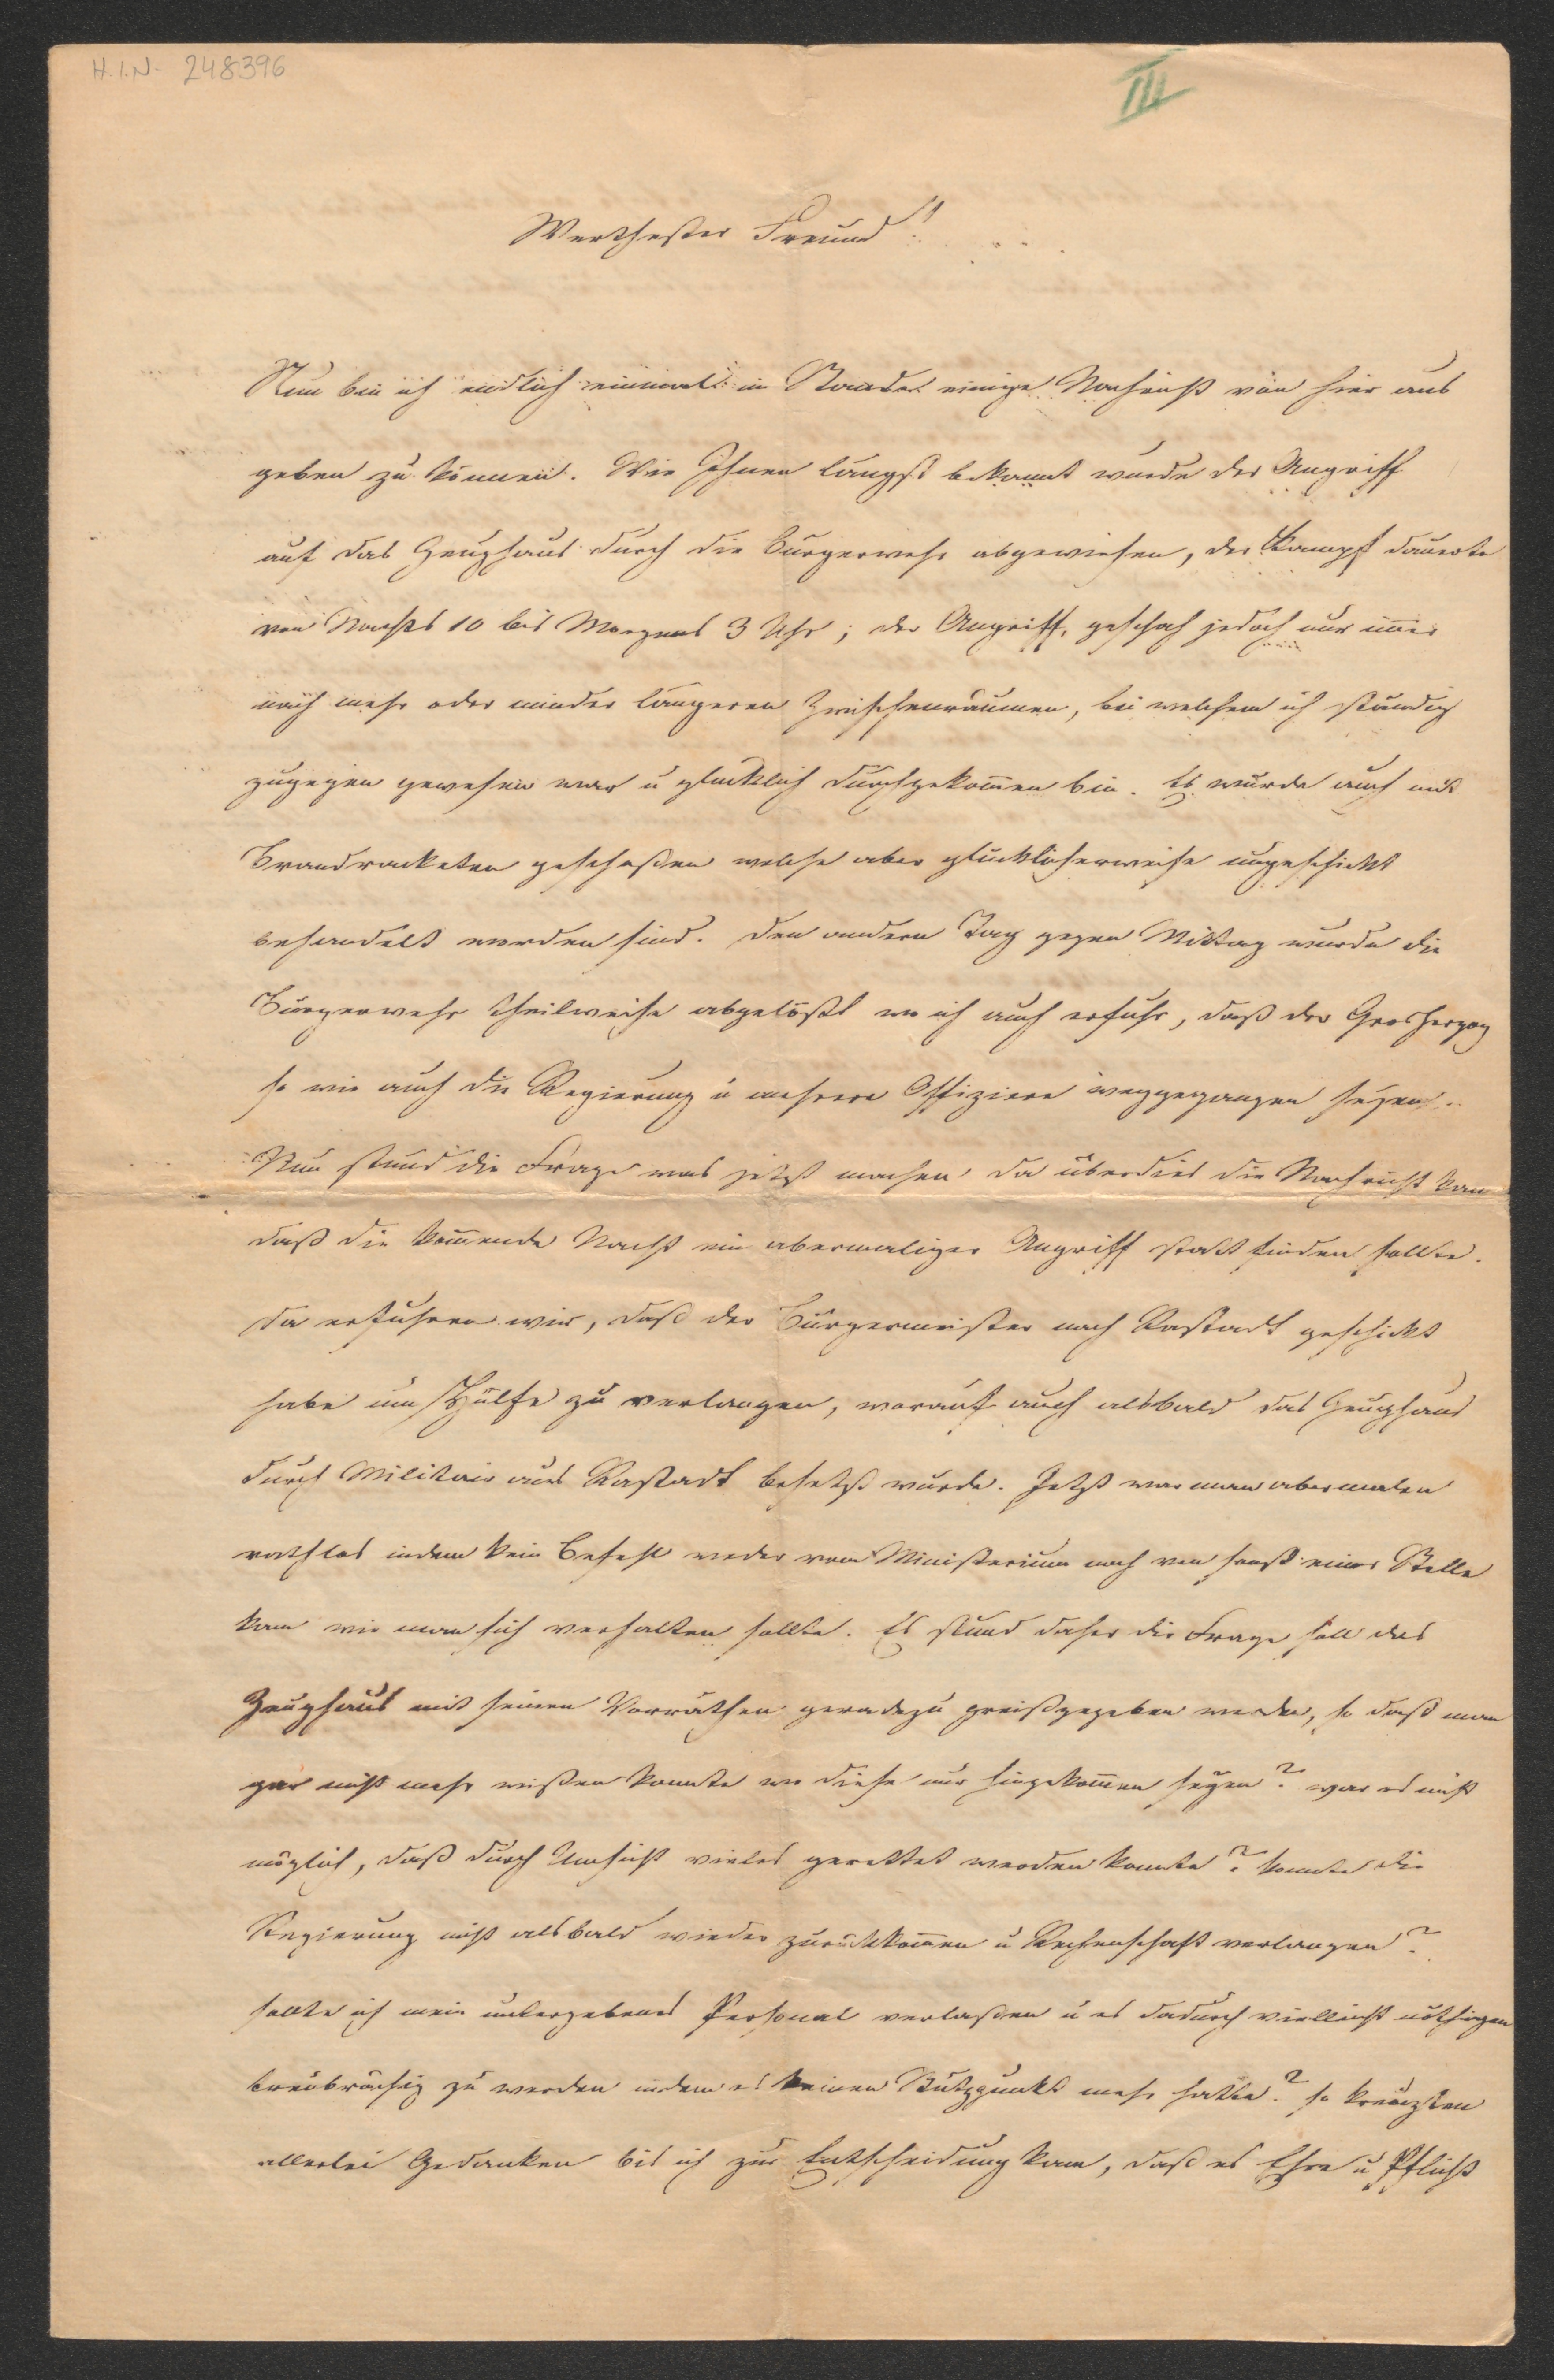 H.I.N. 248396
III
Werthester Freund!
Nun bin ich endlich einmal im Stande einige Nachricht von hier aus
geben zu können. Wie Ihnen längst bekannt wurde der Angriff
auf das Zeughaus durch die Bürgerwehr abgewiesen, der Kampf dauerte
von Nachts 10 bis Morgens 3 Uhr; der Angriff geschah jedoch nur immer
nach mehr oder minder längeren Zwischenräumen, bei welchem ich ständig
zugegen gewesen war u glücklich durchgekom̄en bin. Es wurde auch mit
Brandracketen geschoßen welche aber glücklicherweise ungeschickt
behandelt worden sind. Den andern Tag gegen Mittag wurde die
Bürgerwehr theilweise abgelößt wo ich auch erfuhr, daß der Grosherzog
so wie auch die Regierung u mehrere Offiziere weggegangen seyen.
Nun stund die Frage was jetzt machen da überdies die Nachricht kam
daß die kom̄ende Nacht ein abermaliger Angriff statt finden sollte.
Da erfuhren wir, daß der Bürgermeister nach Rastadt geschickt
habe um Hülfe zu verlangen, worauf auch alsbald das Zeughaus
durch Militair aus Rastadt besetzt wurde. Jetzt war man abermalen
rathlos indem kein Befehl weder vom Ministerium noch von sonst einer Stelle
kam wie man sich verhalten sollte. Es stund daher die Frage soll das
Zeughaus mit seinen Vorräthen geradezu preißgegeben werden, so daß man
gar nicht mehr wißen konnte wo diese nur hingekom̄en seyen? war es nicht
möglich, daß durch Umsicht vieles gerettet werden konnte? konnte die
Regierung nicht alsbald wieder zurückkom̄en u Rechenschaft verlangen?
sollte ich mein untergebenes Personal verlaßen u es dadurch vielleicht nöthigen
treubrüchig zu werden indem es keinen Stützpunkt mehr hatte? so kreuzten
allerlei Gedanken bis ich zur Entscheidung kam, daß es Ehre u Pflicht